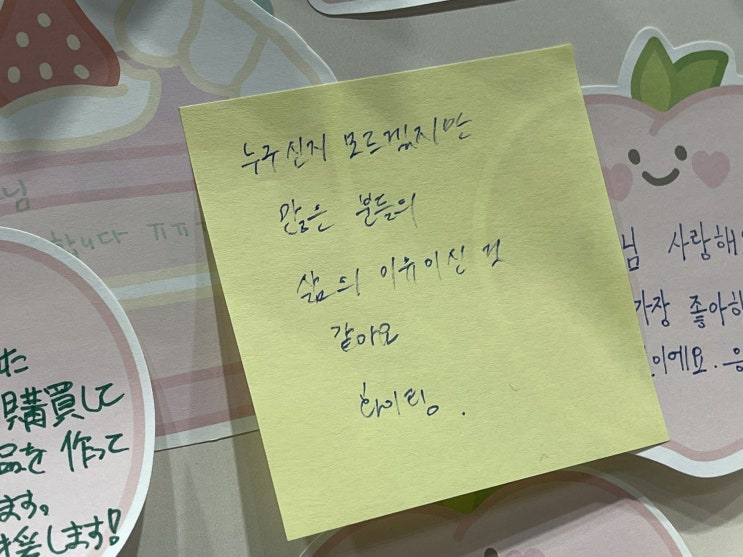 누구신지 모르겠지만
많은 분들의
삶의 이유이신 것
같아요
화이팅.
님
합니다 ㅠㅠ
님 사랑해
가장 좋아해
이에요.
購買して
品を 作って
ます。
援します!